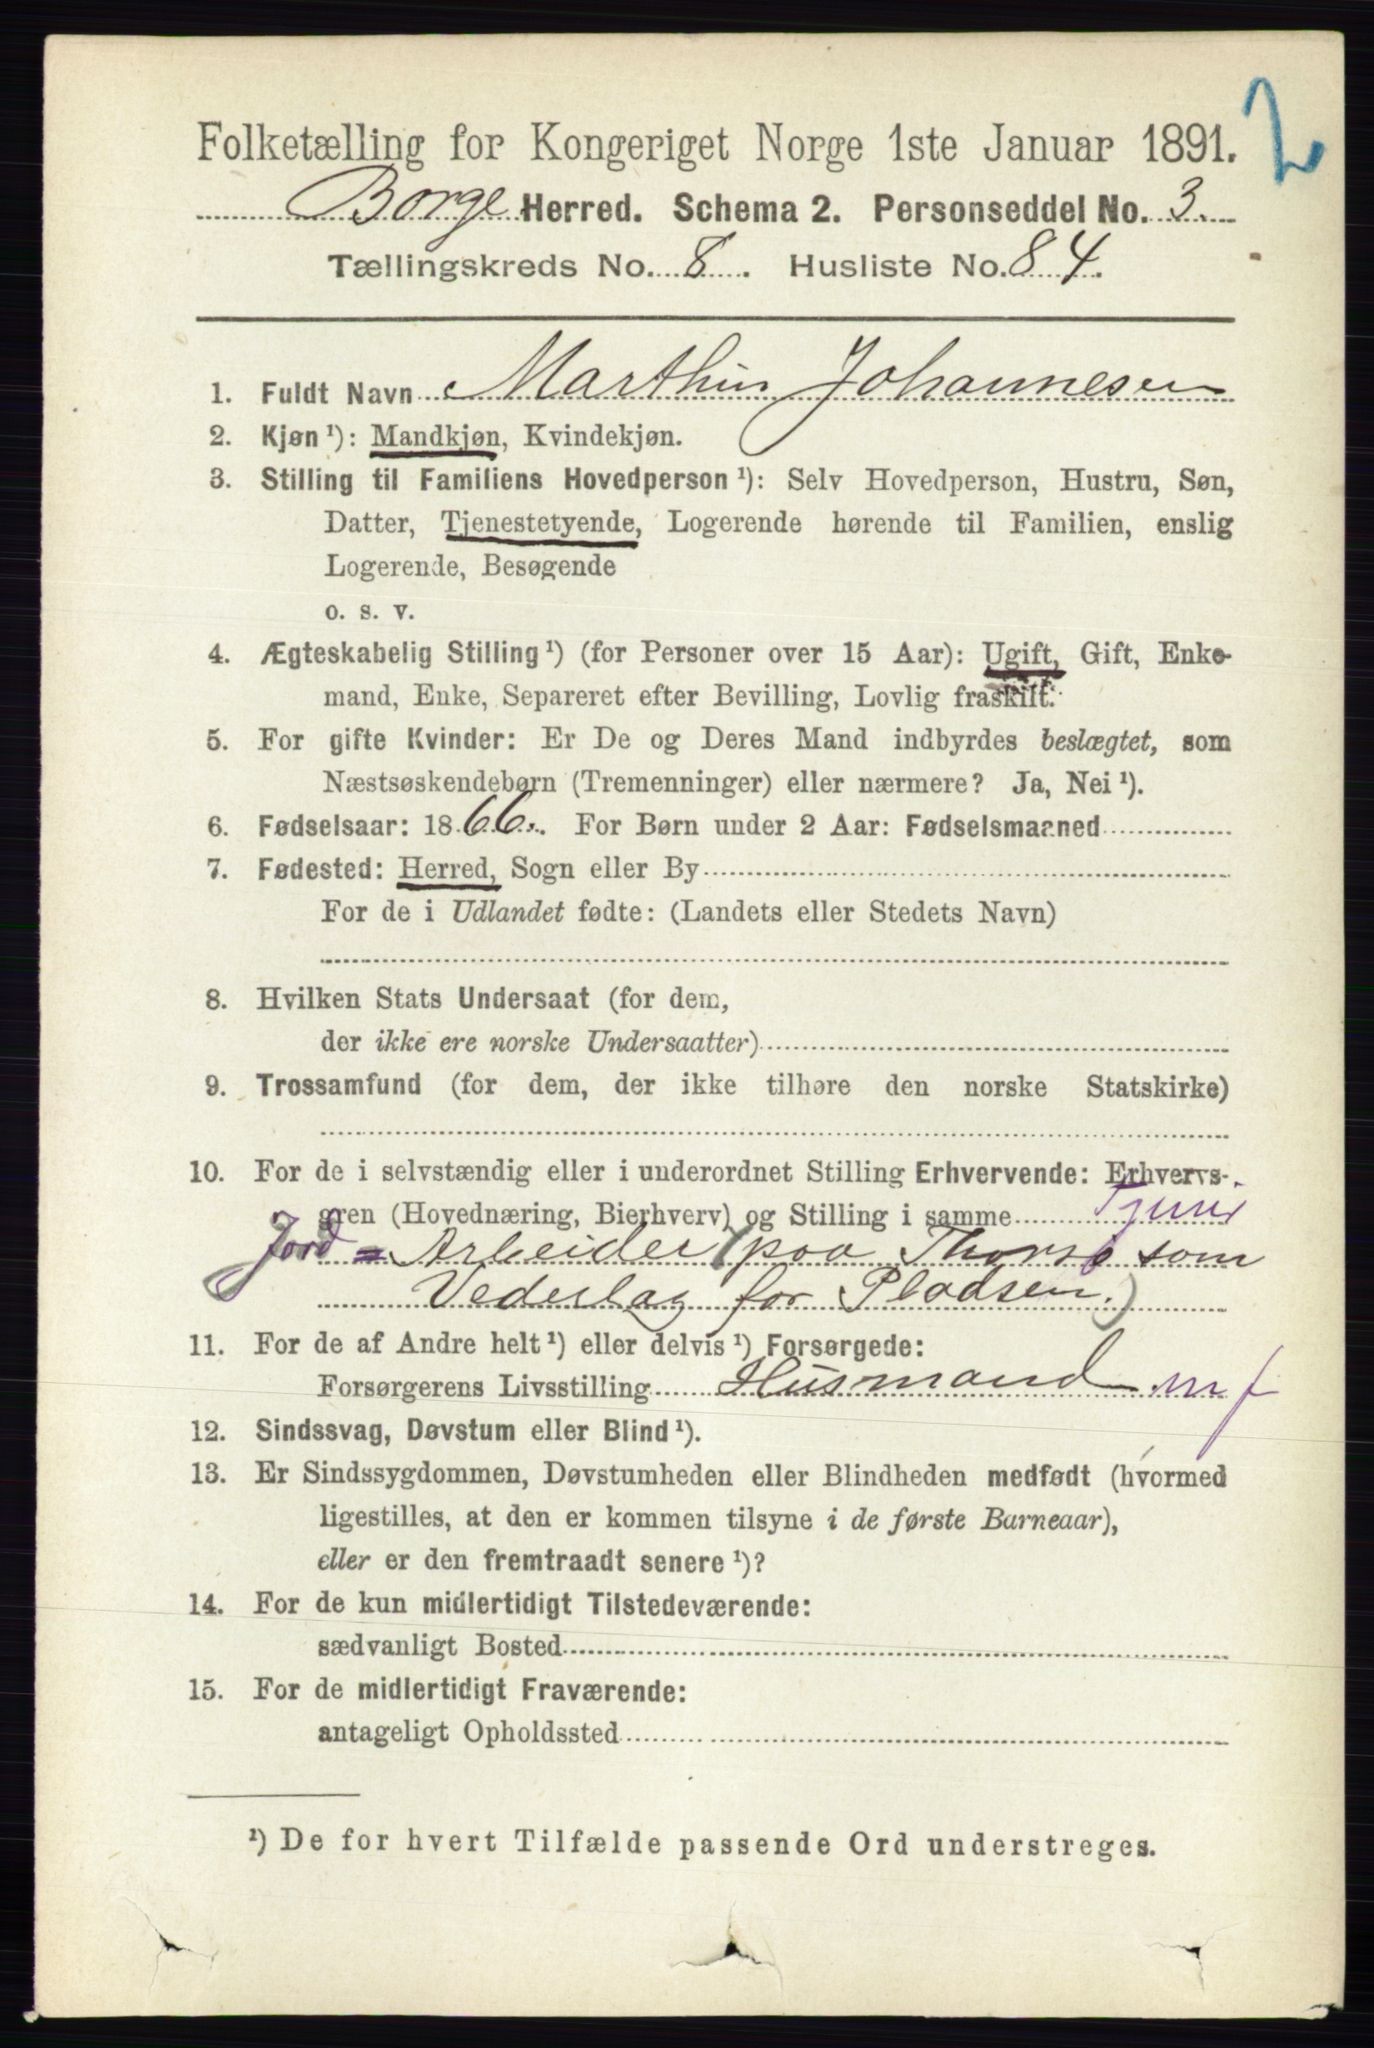 2
Folketælling for Kongeriget Norge 1ste Januar 1891.
Borge Herred. Schema 2. Personseddel No. 3.
Tællingskreds No. 8. Husliste No. 84.
1. Fuldt Navn Marthin Johannesen
2. Kjøn ¹): Mandkjøn, Kvindekjøn.
3. Stilling til Familiens Hovedperson ¹): Selv Hovedperson, Hustru, Søn,
Datter, Tjenestetyende, Logerende hørende til Familien, enslig
Logerende, Besøgende
o. s. v.
4. Ægteskabelig Stilling ¹) (for Personer over 15 Aar): Ugift, Gift, Enke-
mand, Enke, Separeret efter Bevilling, Lovlig fraskilt.
5. For gifte Kvinder: Er De og Deres Mand indbyrdes beslægtet, som
Næstsøskendebørn (Tremenninger) eller nærmere? Ja, Nei ¹).
6. Fødselsaar: 1866. For Børn under 2 Aar: Fødselsmaaned
7. Fødested: Herred, Sogn eller By
For de i Udlandet fødte: (Landets eller Stedets Navn)
8. Hvilken Stats Undersaat (for dem,
der ikke ere norske Undersaatter)
9. Trossamfund (for dem, der ikke tilhøre den norske Statskirke)
10. For de i selvstændig eller i underordnet Stilling Erhvervende: Erhvervs-
gren (Hovednæring, Bierhverv) og Stilling i samme
Jord = Arbeider (paa Thorsø som
Vederlag for Pladsen.)
11. For de af Andre helt ¹) eller delvis ¹) Forsørgede:
Forsørgerens Livsstilling Husmand m f
12. Sindssvag, Døvstum eller Blind ¹).
13. Er Sindssygdommen, Døvstumheden eller Blindheden medfødt (hvormed
ligestilles, at den er kommen tilsyne i de første Barneaar),
eller er den fremtraadt senere ¹)?
14. For de kun midlertidigt Tilstedeværende:
sædvanligt Bosted
15. For de midlertidigt Fraværende:
antageligt Opholdssted
¹) De for hvert Tilfælde passende Ord understreges.